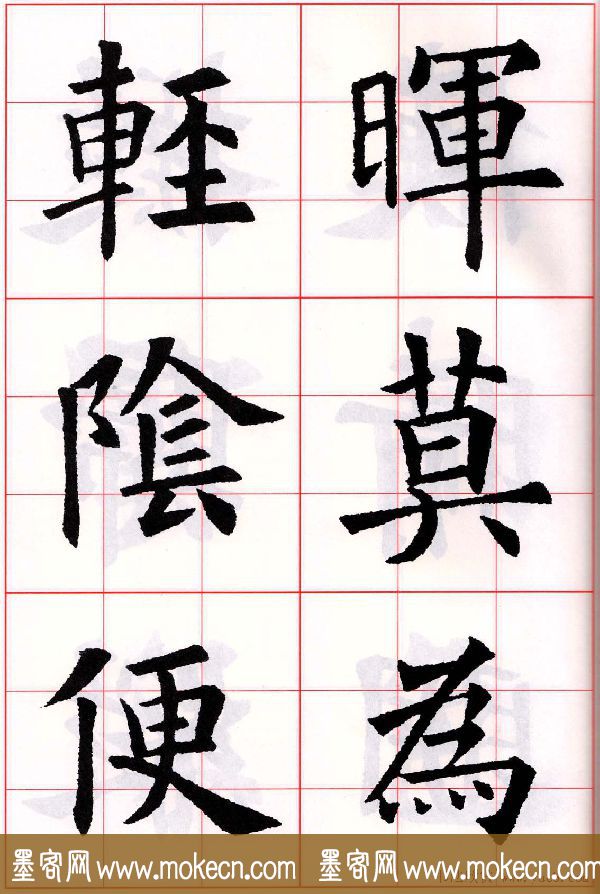 暉莫為
輕陰便
墨客网 www.mokecn.com 墨客网 www.mokecn.com